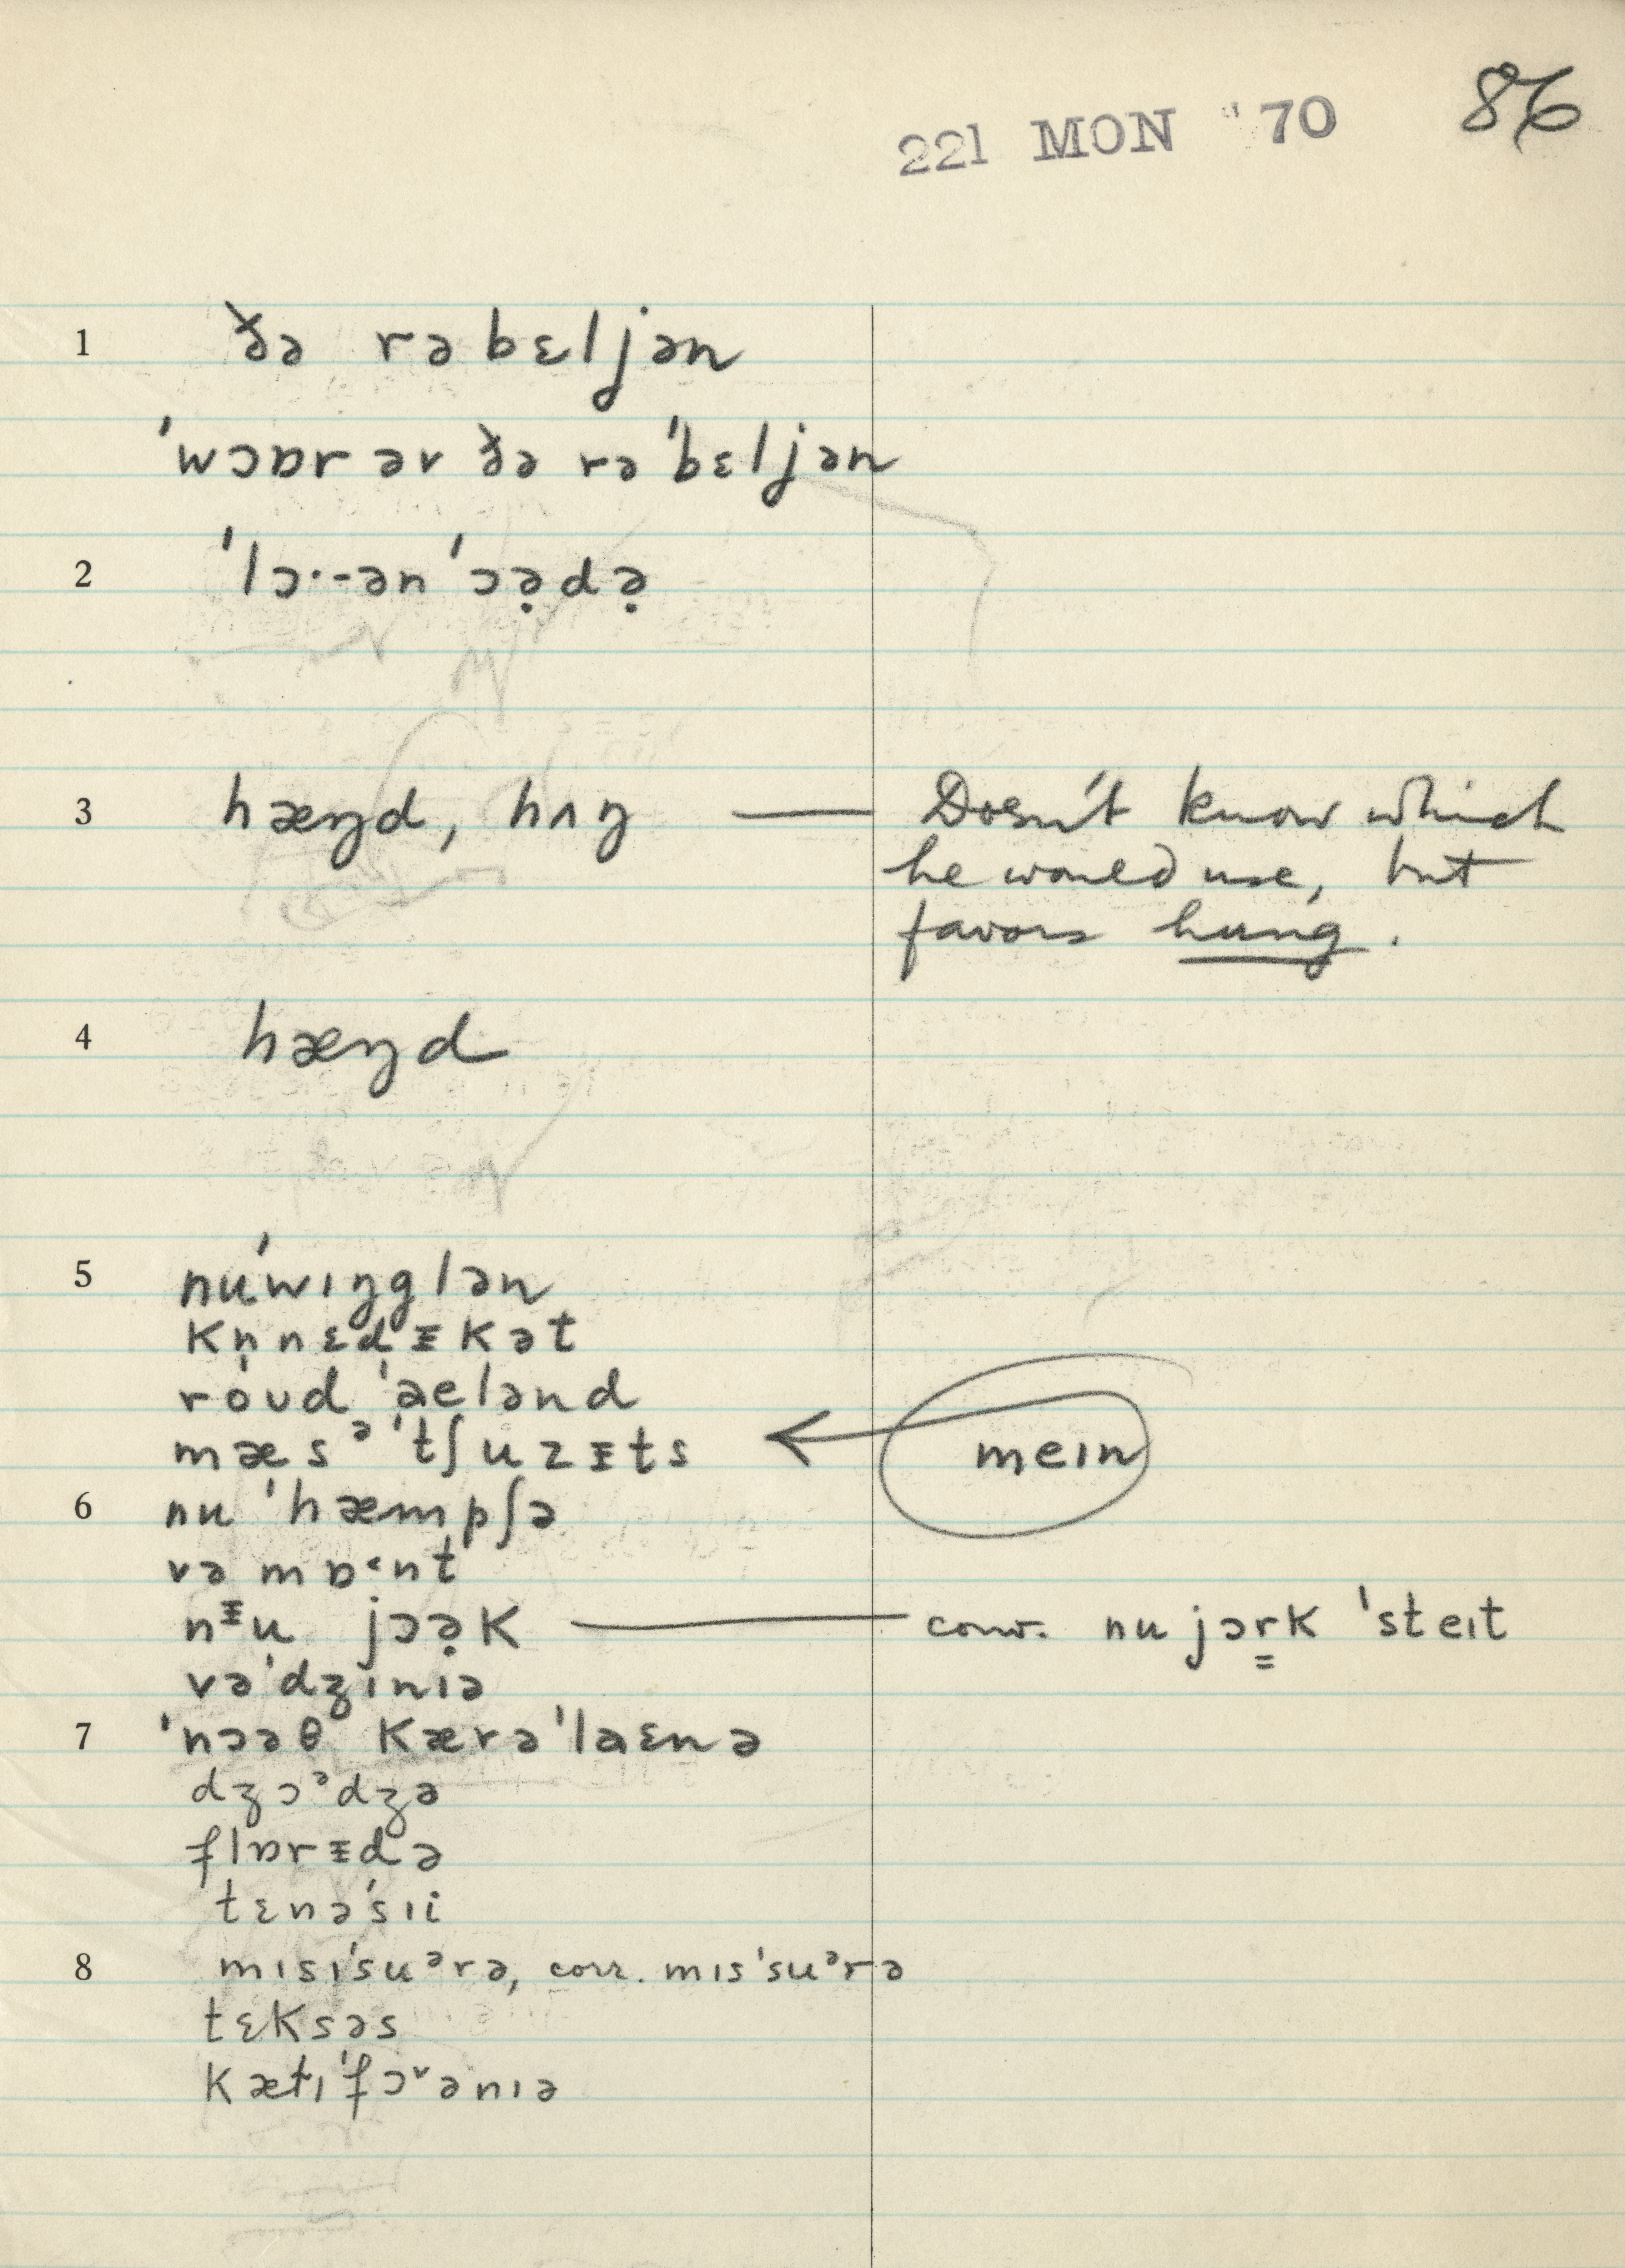 221 MON '70 86
1 ðə rəbɛljən
ˈwɔɒr əv ðə rəˈbɛljən
2 ˈlɔ·-ən ˈɔə̣də̣
3 hæŋd, hʌŋ — Doesn't know which
he would use, but
favors hung.
4 hæŋd
5 nuˈwɪŋglən
kn̩nɛdᵻkət
roʊd ˈaelənd
mæsᵊˈtʃuzᵻts ← meɪn
6 nu ˈhæmpʃə
vəmɒ˂nt
nᵻu jɔə̣k — conv. nu jɔr̳k ˈsteɪt
vəˈdʒɪnɪə
7 ˈnɔəθ kærəˈlaɛnə
dʒɔᵊdʒə
flɒrᵻdə
tɛnəˈsɪi
8 mɪsɪˈsuᵊrə, corr. mɪsˈsuᵊrə
tɛksəs
kætɪˈfɔ˅ənɪə